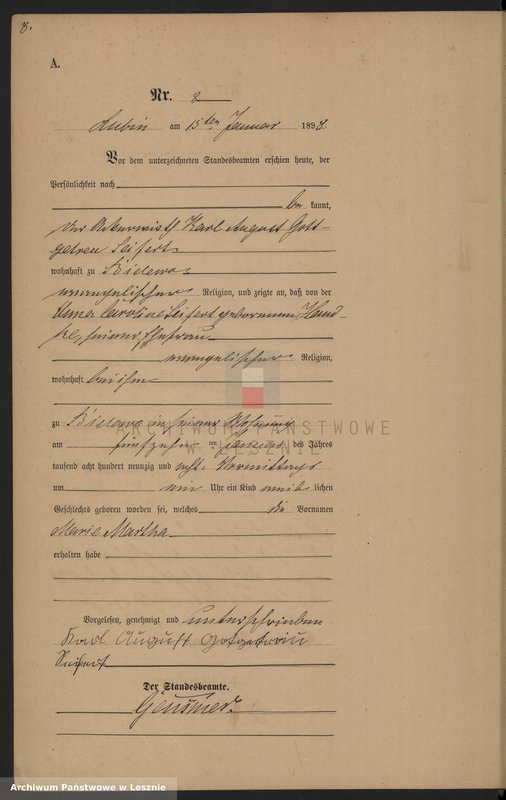 8.
A.
Nr. 8
Lubin am 15ten Januar 1898
Vor dem unterzeichneten Standesbeamten erschien heute, der
Persönlichkeit nach
be kannt,
der Ackerwirth Karl August Gott-
getreu Seifert
wohnhaft zu
evangelischer Religion, und zeigte an, daß von der
Anna Caroline Seifert gebornenen
seiner Ehefrau
evangelischer Religion,
wohnhaft bei ihm
zu in seiner Wohnung
am fünfzehnten Januar des Jahres
tausend acht hundert neunzig und acht Vormittags
um ein Uhr ein Kind weib lichen
Geschlechts geboren worden sei, welches die Vornamen
Marie Martha
erhalten habe
Vorgelesen, genehmigt und unterschrieben
Karl August
Seifert
Der Standesbeamte.
ARCHIWUM PAŃSTWOWE
W LESZNIE
Archiwum Państwowe w Lesznie